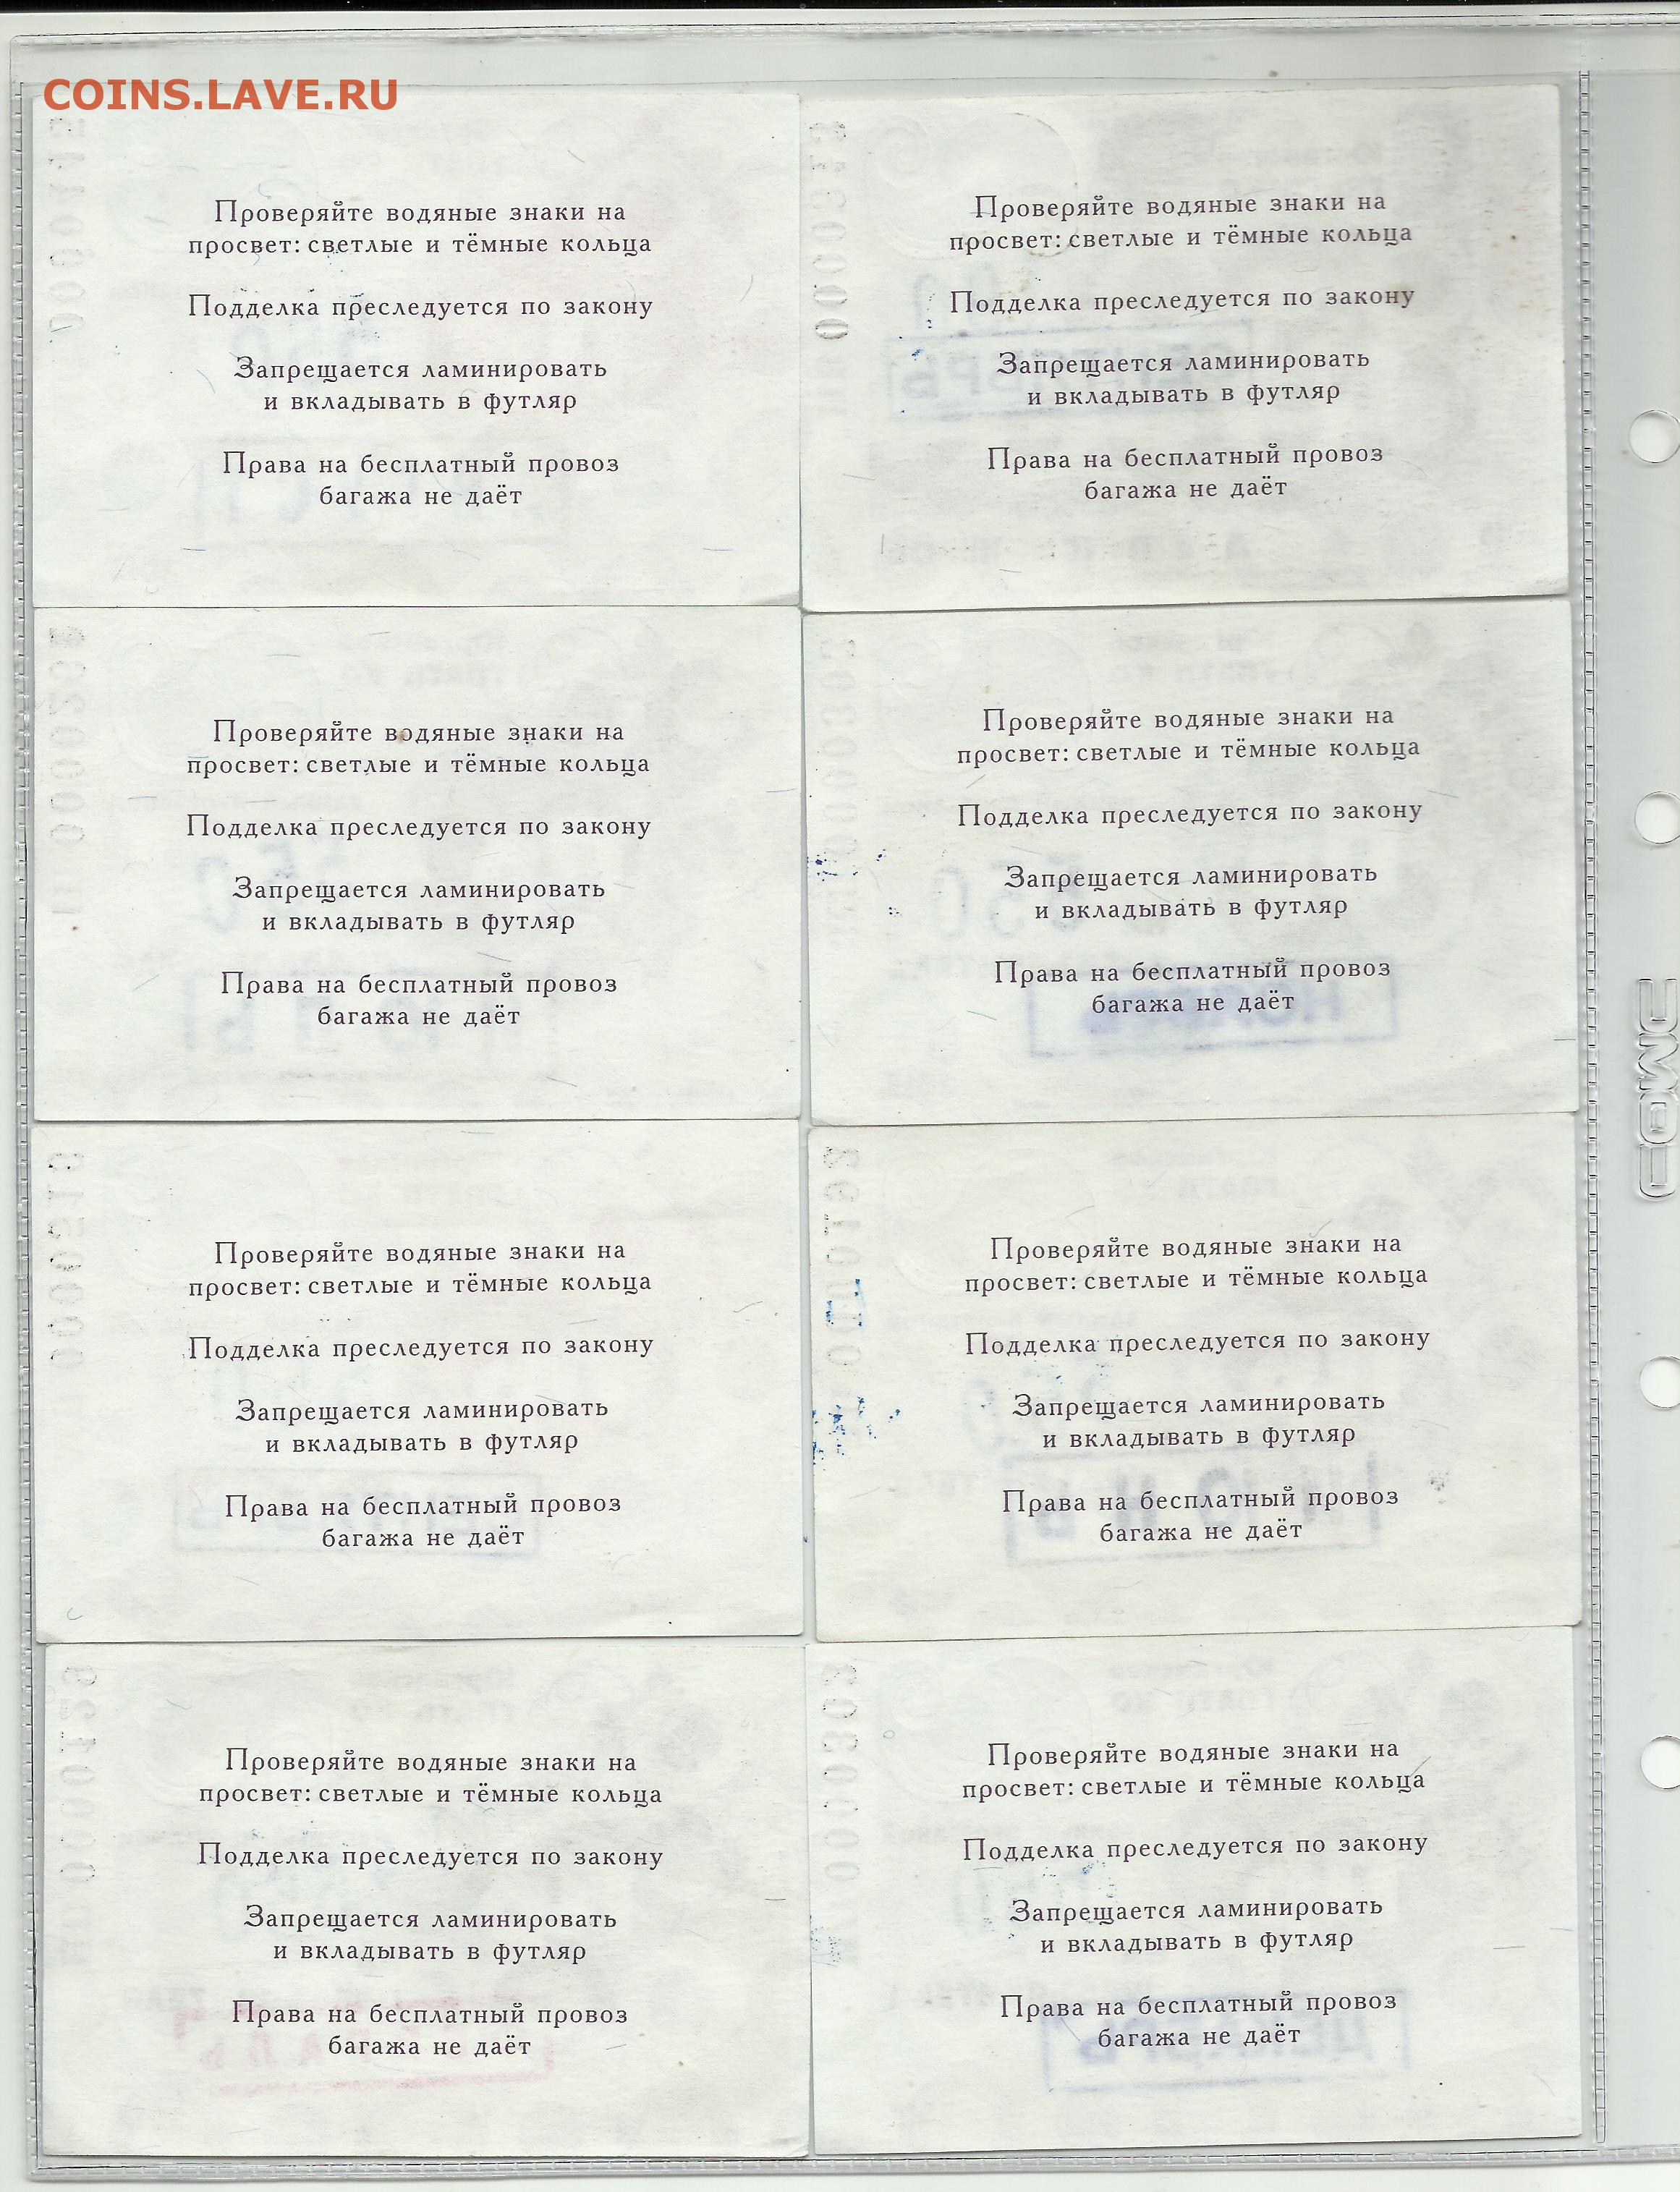 COINS.LAVE.RU
Проверяйте водяные знаки на
просвет: светлые и тёмные кольца
Подделка преследуется по закону
Запрещается ламинировать
и вкладывать в футляр
Права на бесплатный провоз
багажа не даёт
Проверяйте водяные знаки на
просвет: светлые и тёмные кольца
Подделка преследуется по закону
Запрещается ламинировать
и вкладывать в футляр
Права на бесплатный провоз
багажа не даёт
Проверяйте водяные знаки на
просвет: светлые и тёмные кольца
Подделка преследуется по закону
Запрещается ламинировать
и вкладывать в футляр
Права на бесплатный провоз
багажа не даёт
Проверяйте водяные знаки на
просвет: светлые и тёмные кольца
Подделка преследуется по закону
Запрещается ламинировать
и вкладывать в футляр
Права на бесплатный провоз
багажа не даёт
Проверяйте водяные знаки на
просвет: светлые и тёмные кольца
Подделка преследуется по закону
Запрещается ламинировать
и вкладывать в футляр
Права на бесплатный провоз
багажа не даёт
Проверяйте водяные знаки на
просвет: светлые и тёмные кольца
Подделка преследуется по закону
Запрещается ламинировать
и вкладывать в футляр
Права на бесплатный провоз
багажа не даёт
Проверяйте водяные знаки на
просвет: светлые и тёмные кольца
Подделка преследуется по закону
Запрещается ламинировать
и вкладывать в футляр
Права на бесплатный провоз
багажа не даёт
Проверяйте водяные знаки на
просвет: светлые и тёмные кольца
Подделка преследуется по закону
Запрещается ламинировать
и вкладывать в футляр
Права на бесплатный провоз
багажа не даёт